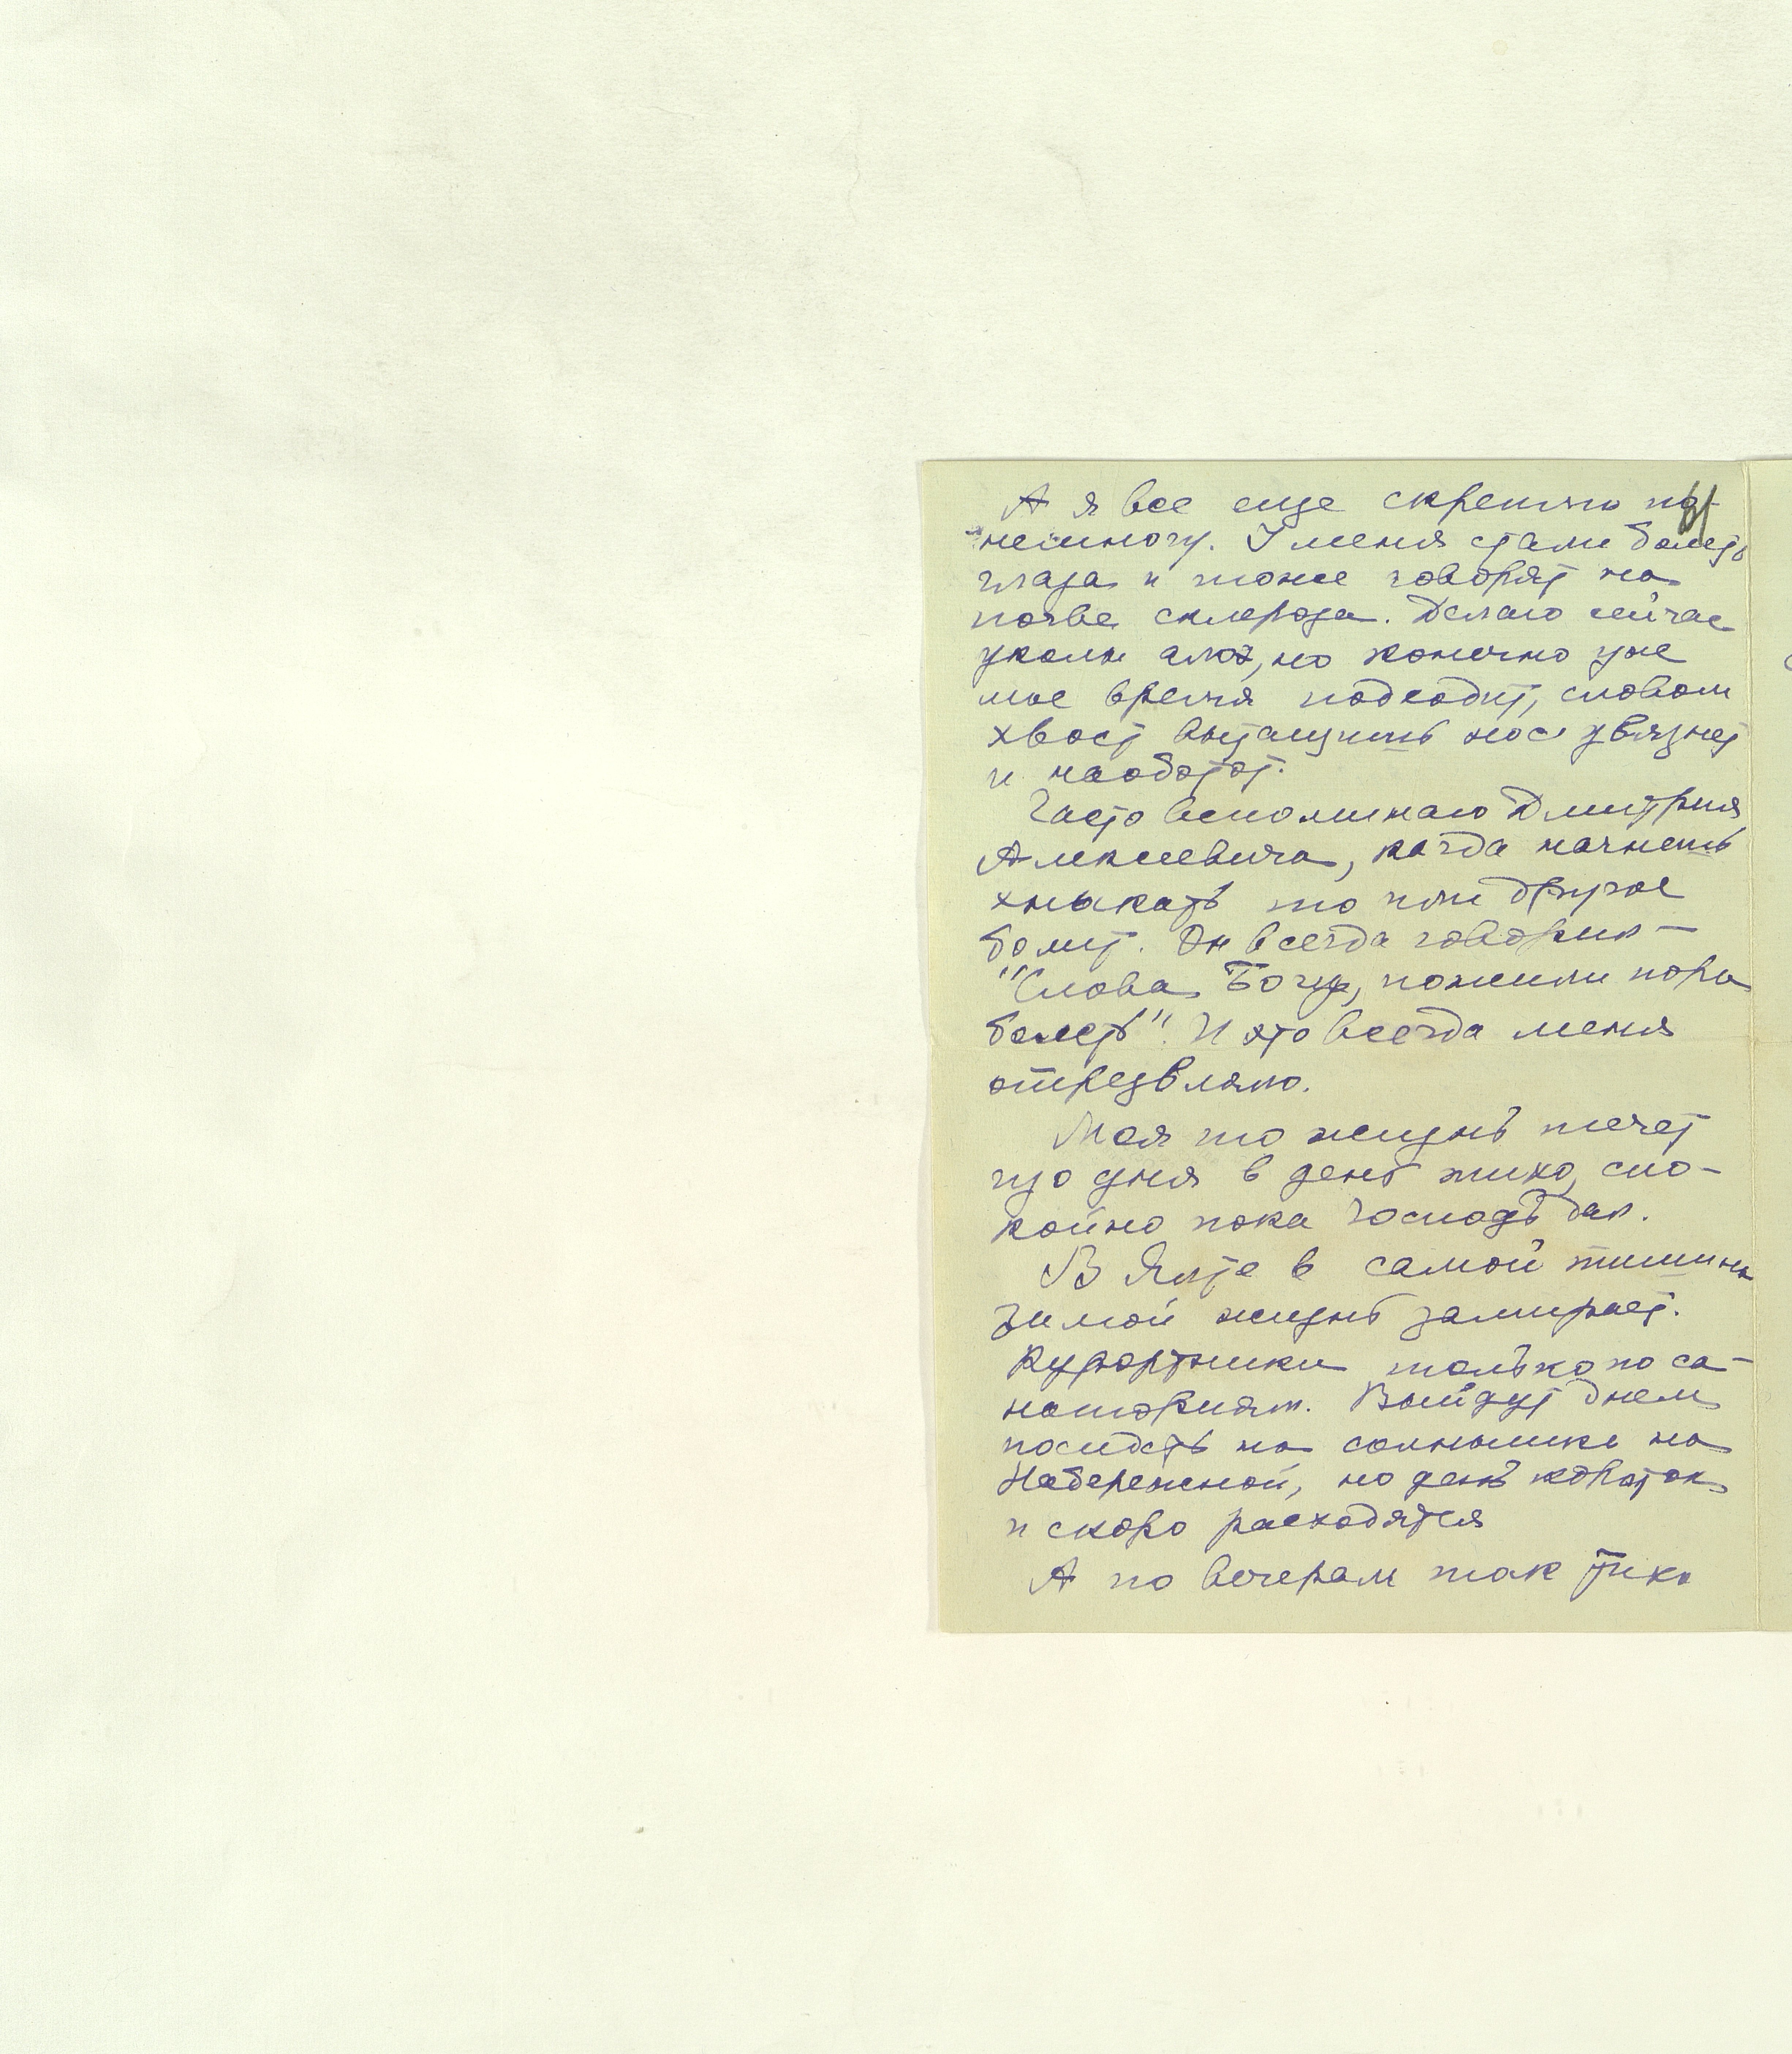 А я все еще скреплю по-
немногу. У меня стали болеть
глаза и тоже говорят на
почве склероза. Делаю сейчас
уколы алоэ, но конечно уже
мое время подходит, словом
хвост вытащишь нос увязнет
и наоборот.
Часто вспоминаю Дмитрия
Алексеевича, когда начнешь
хныкать то или другое
болит. Он всегда говорил –
"Слова Богу, пожили пора
болеть". И это всегда меня
отрезвляло.
Моя то жизнь течет
изо дня в день тихо, спо-
койно пока Господь дал.
В Ялте в самой тишине
зимой жизнь замирает.
Курортники только по са-
наториям. Выйдут днем
посидеть на солнышке на
Набережной, но день короток
и скоро расходятся
А по вечерам так тихо